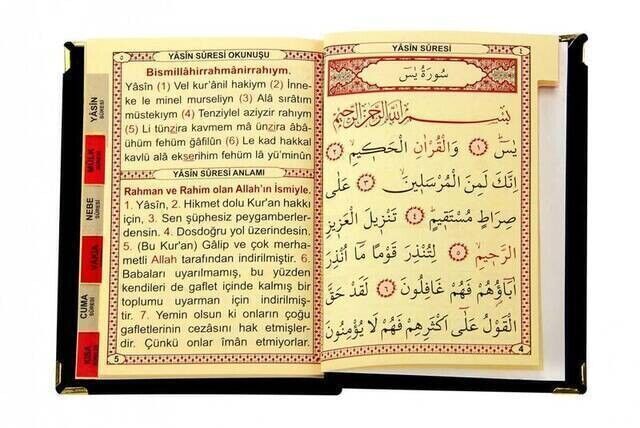 YÂSİN SÛRESİ OKUNUŞU
Bismillâhirrahmânirrahıym.
Yâsîn (1) Vel kur'ânil hakiym (2) İnne-
ke le minel murseliyn (3) Alâ sırâtım
müstekıym (4) Tenziylel aziyzir rahiym
(5) Li tünzira kavmem mâ ünzira âbâ-
ühüm fehüm ğâfilûn (6) Le kad hakkal
kavlü alâ ekserihim fehüm lâ yü'minûn
YÂSİN SÛRESİ ANLAMI
Rahman ve Rahim olan Allah'ın İsmiyle.
1. Yâsîn, 2. Hikmet dolu Kur'an hakkı
için, 3. Sen şüphesiz peygamberler-
densin. 4. Dosdoğru yol üzerindesin.
5. (Bu Kur'an) Gâlip ve çok merha-
metli Allah tarafından indirilmiştir. 6.
Babaları uyarılmamış, bu yüzden
kendileri de gaflet içinde kalmış bir
toplumu uyarman için indirilmiş-
tir. 7. Yemin olsun ki onların çoğu
gafletlerinin cezasını hak etmişler-
dir. Çünkü onlar îmân etmiyorlar.
5
YÂSİN
SÛRESİ
MÜLK
NEBE
SÛRESİ
VAKIA
CUMA
SÛRESİ
KISA
YÂSİN SÛRESİ
٤
سُورَةُ يٰسٓ
بِسْمِ اللّٰهِ الرَّحْمٰنِ الرَّحِيمِ
يٰسٓ ﴿١﴾ وَالْقُرْاٰنِ الْحَكِيمِ ﴿٢﴾
اِنَّكَ لَمِنَ الْمُرْسَلِينَ ﴿٣﴾ عَلٰى
صِرَاطٍ مُسْتَقِيمٍ ﴿٤﴾ تَنْزِيلَ الْعَزِيزِ
الرَّحِيمِ ﴿٥﴾ لِتُنْذِرَ قَوْمًا مَٓا اُنْذِرَ
اٰبَٓاؤُ۬هُمْ فَهُمْ غَافِلُونَ ﴿٦﴾ لَقَدْ حَقَّ
الْقَوْلُ عَلٰٓى اَكْثَرِهِمْ فَهُمْ لَا يُؤْمِنُونَ
4